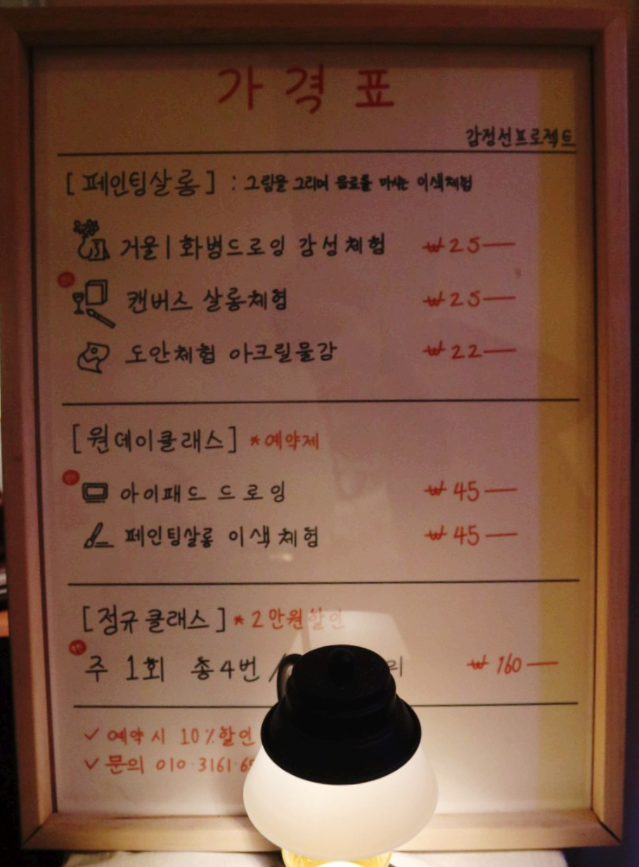 가격표
감정선프로젝트
[페인팅살롱] : 그림을 그리며 음료를 마시는 이색체험
거울 | 화병드로잉 감성체험 ₩25—
캔버스 살롱체험 ₩25—
도안체험 아크릴물감 ₩22—
[원데이클래스] *예약제
아이패드 드로잉 ₩45—
페인팅살롱 이색체험 ₩45—
[정규클래스] *2만원할인
주 1회 총4번 / ₩160—
✓ 예약시 10%할인
✓ 문의 010·3161·6